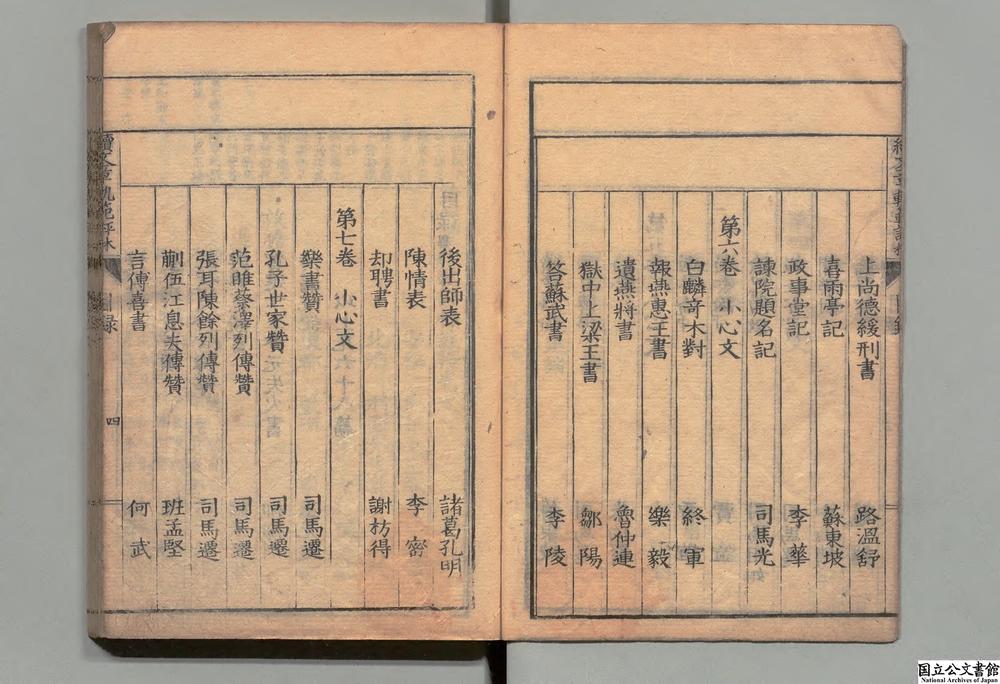 上尚德緩刑書 路溫舒
喜雨亭記 蘇東坡
政事堂記 李華
諫院題名記 司馬光
第六卷 小心文
白麟奇木對 終軍
報燕惠王書 樂毅
遺燕將書 魯仲連
獄中上梁王書 鄒陽
答蘇武書 李陵
後出師表 諸葛孔明
陳情表 李密
却聘書 謝枋得
第七卷 小心文
樂書贊 司馬遷
孔子世家贊 司馬遷
范睢蔡澤列傳贊 司馬遷
張耳陳餘列傳贊 司馬遷
蒯伍江息夫傳贊 班孟堅
言傅喜書 何武
續文章軌範評林 目録 四
国立公文書館
National Archives of Japan